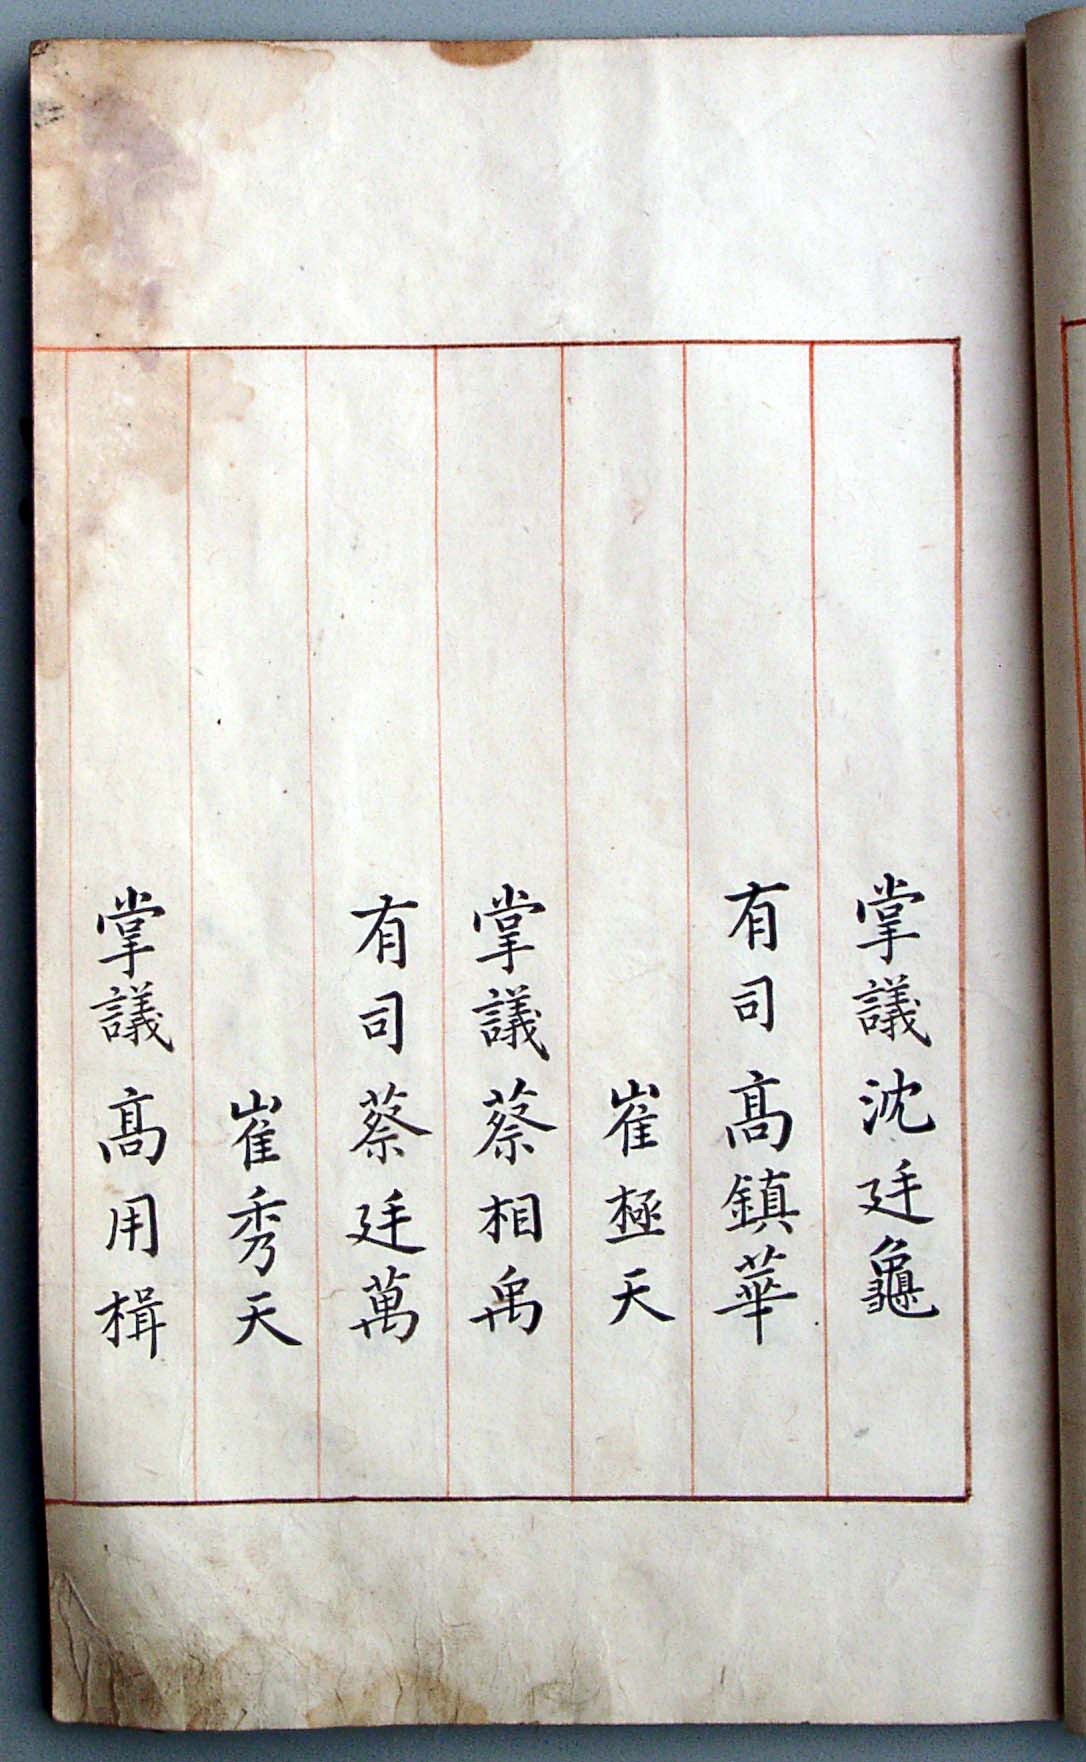 掌議沈廷龜
有司高鎮華
崔極天
掌議蔡相禹
有司蔡廷萬
崔秀天
掌議高用楫